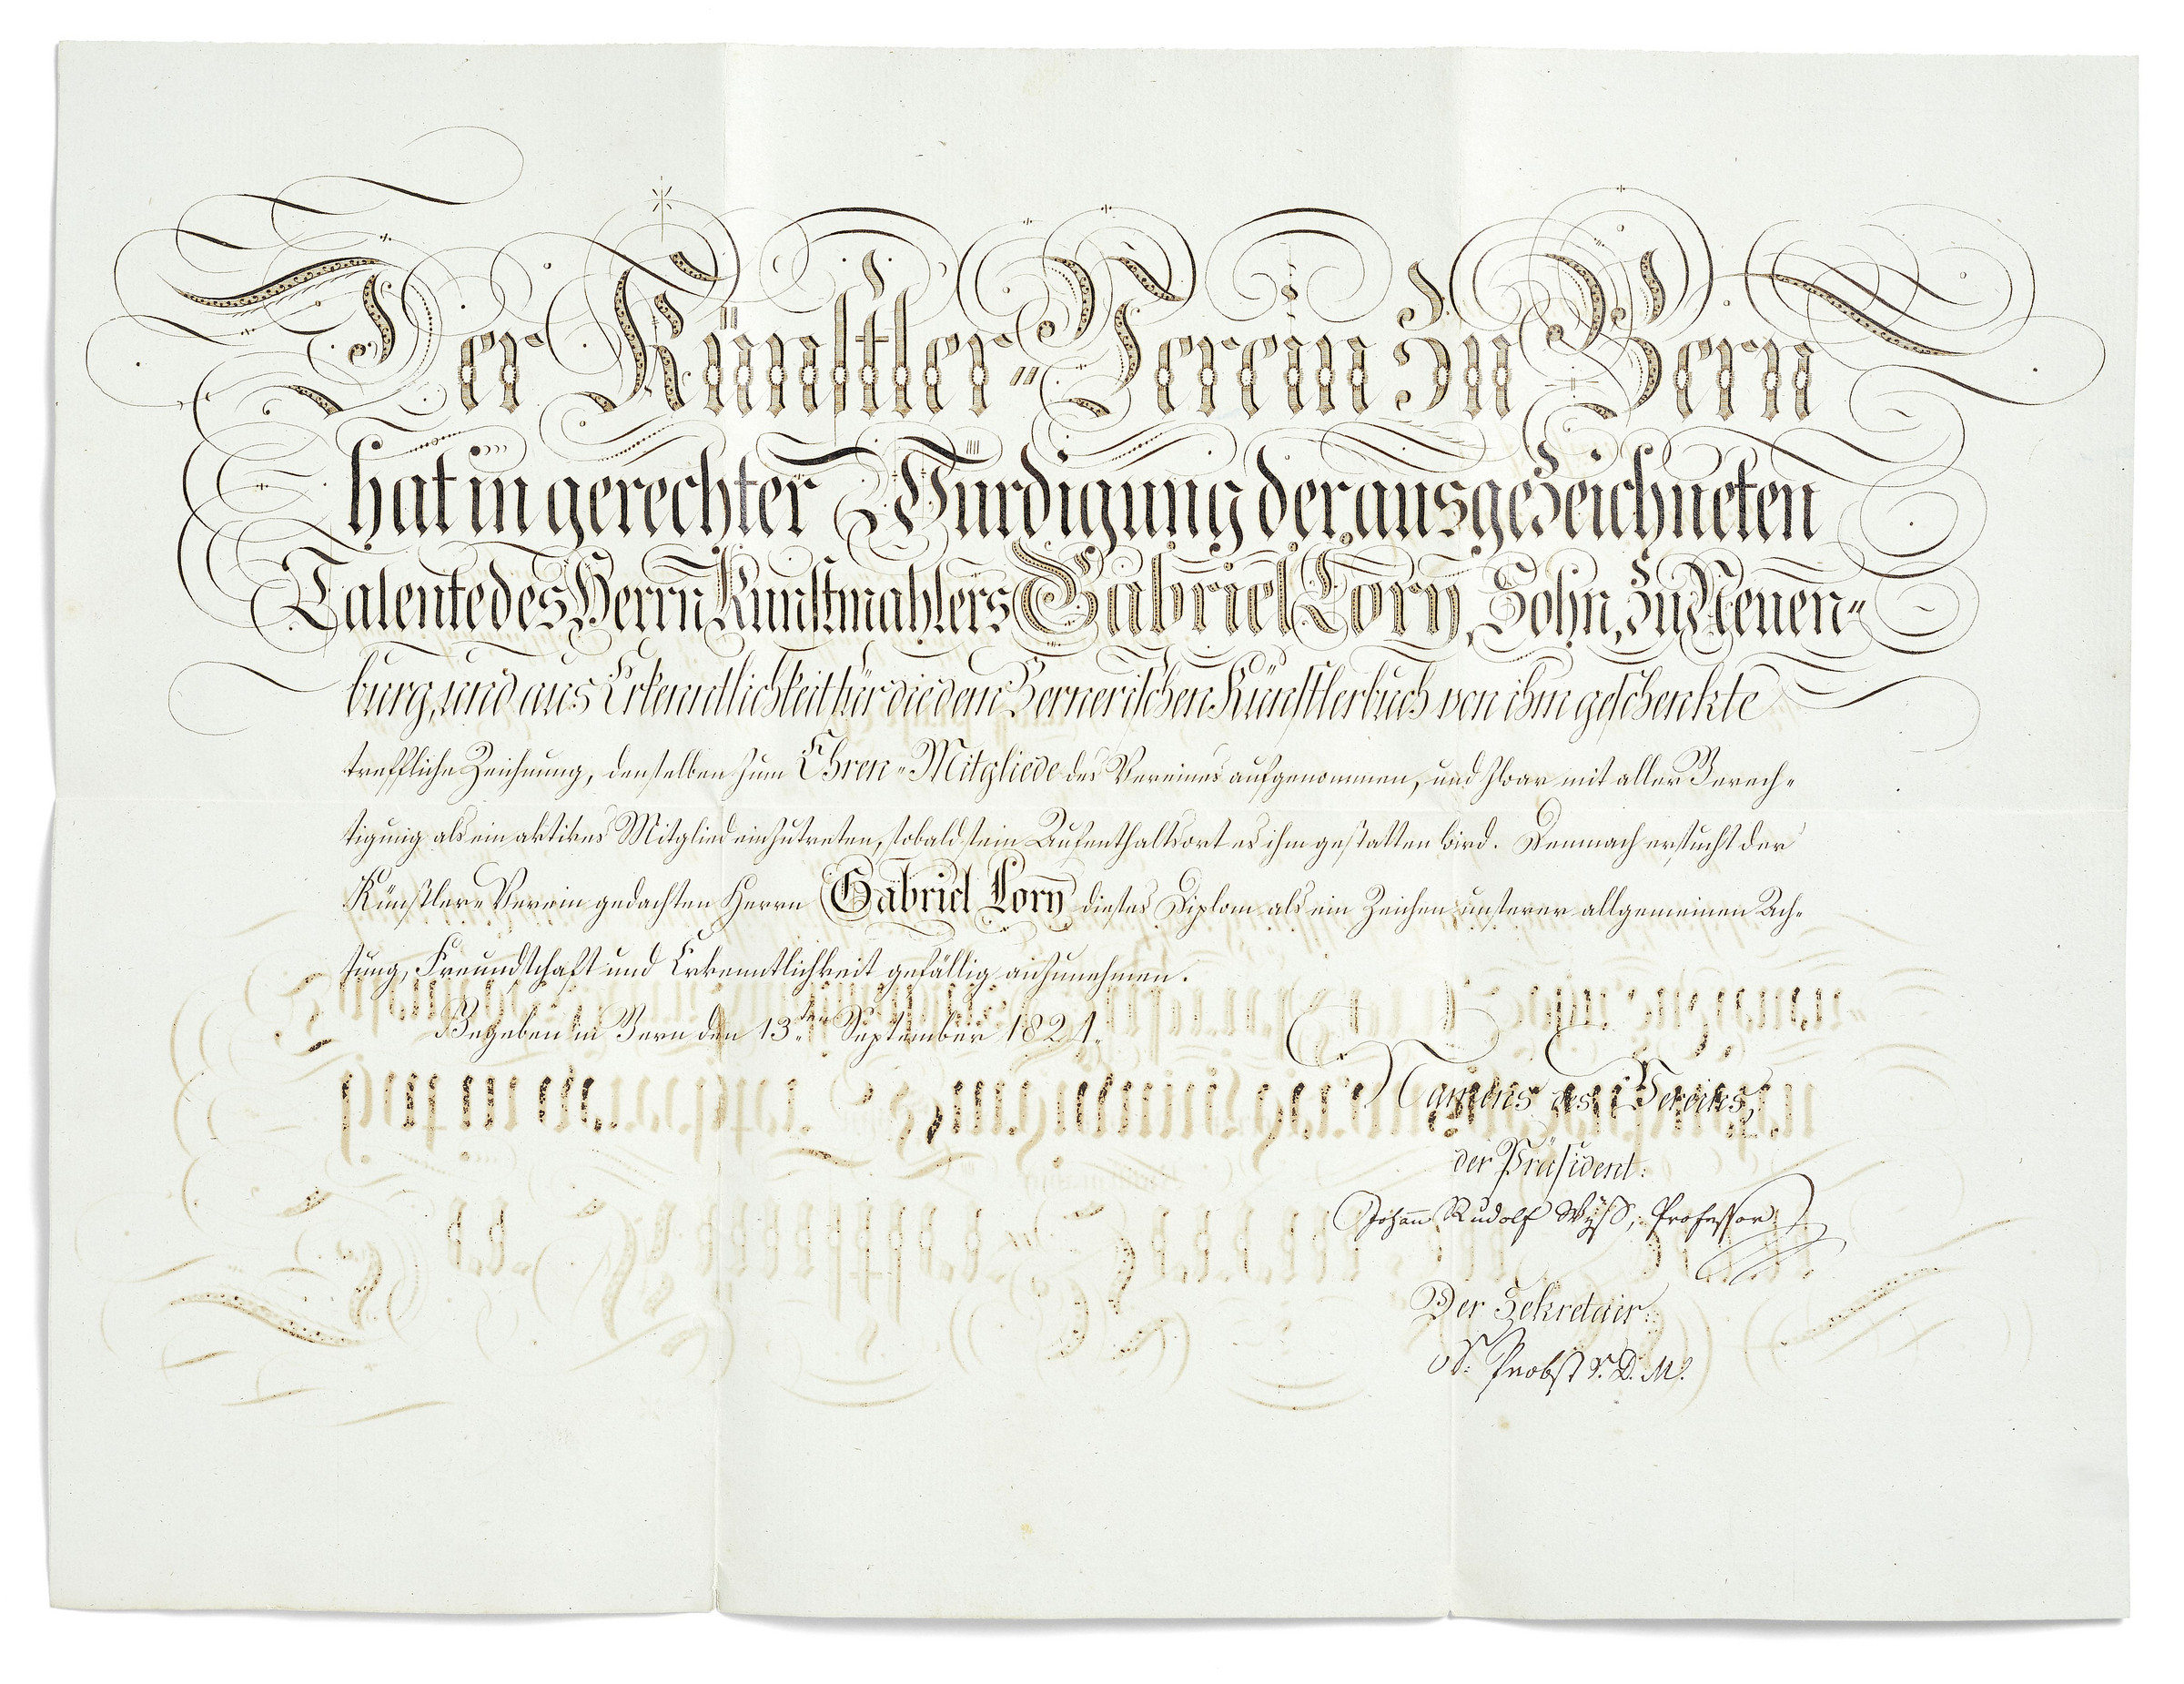 Der Künstler-Verein zu Bern
hat in gerechter Würdigung der ausgezeichneten
Talente des Herrn Kunstmahlers Gabriel Lory, Sohn, zu Neuen-
burg, und aus Erkenntlichkeit für die dem Bernerischen Künstlerbuch von ihm geschenkte
treffliche Zeichnung, denselben zum Ehren-Mitgliede des Vereines aufgenommen, und zwar mit aller Berech-
tigung als ein aktives Mitglied einzutreten, sobald sein Aufenthaltsort es ihm gestatten wird. Demnach ersucht der
Künstler-Verein gedachten Herrn Gabriel Lory dieses Diplom als ein Zeichen unserer allgemeinen Ach-
tung, Freundschaft und Erkenntlichkeit gefällig anzunehmen.
Gegeben in Bern den 13.ten September 1821.
Namens des Vereins,
der Präsident:
Johann Rudolf Wyß, Professor
Der Sekretair:
S. Probst V. D. M.